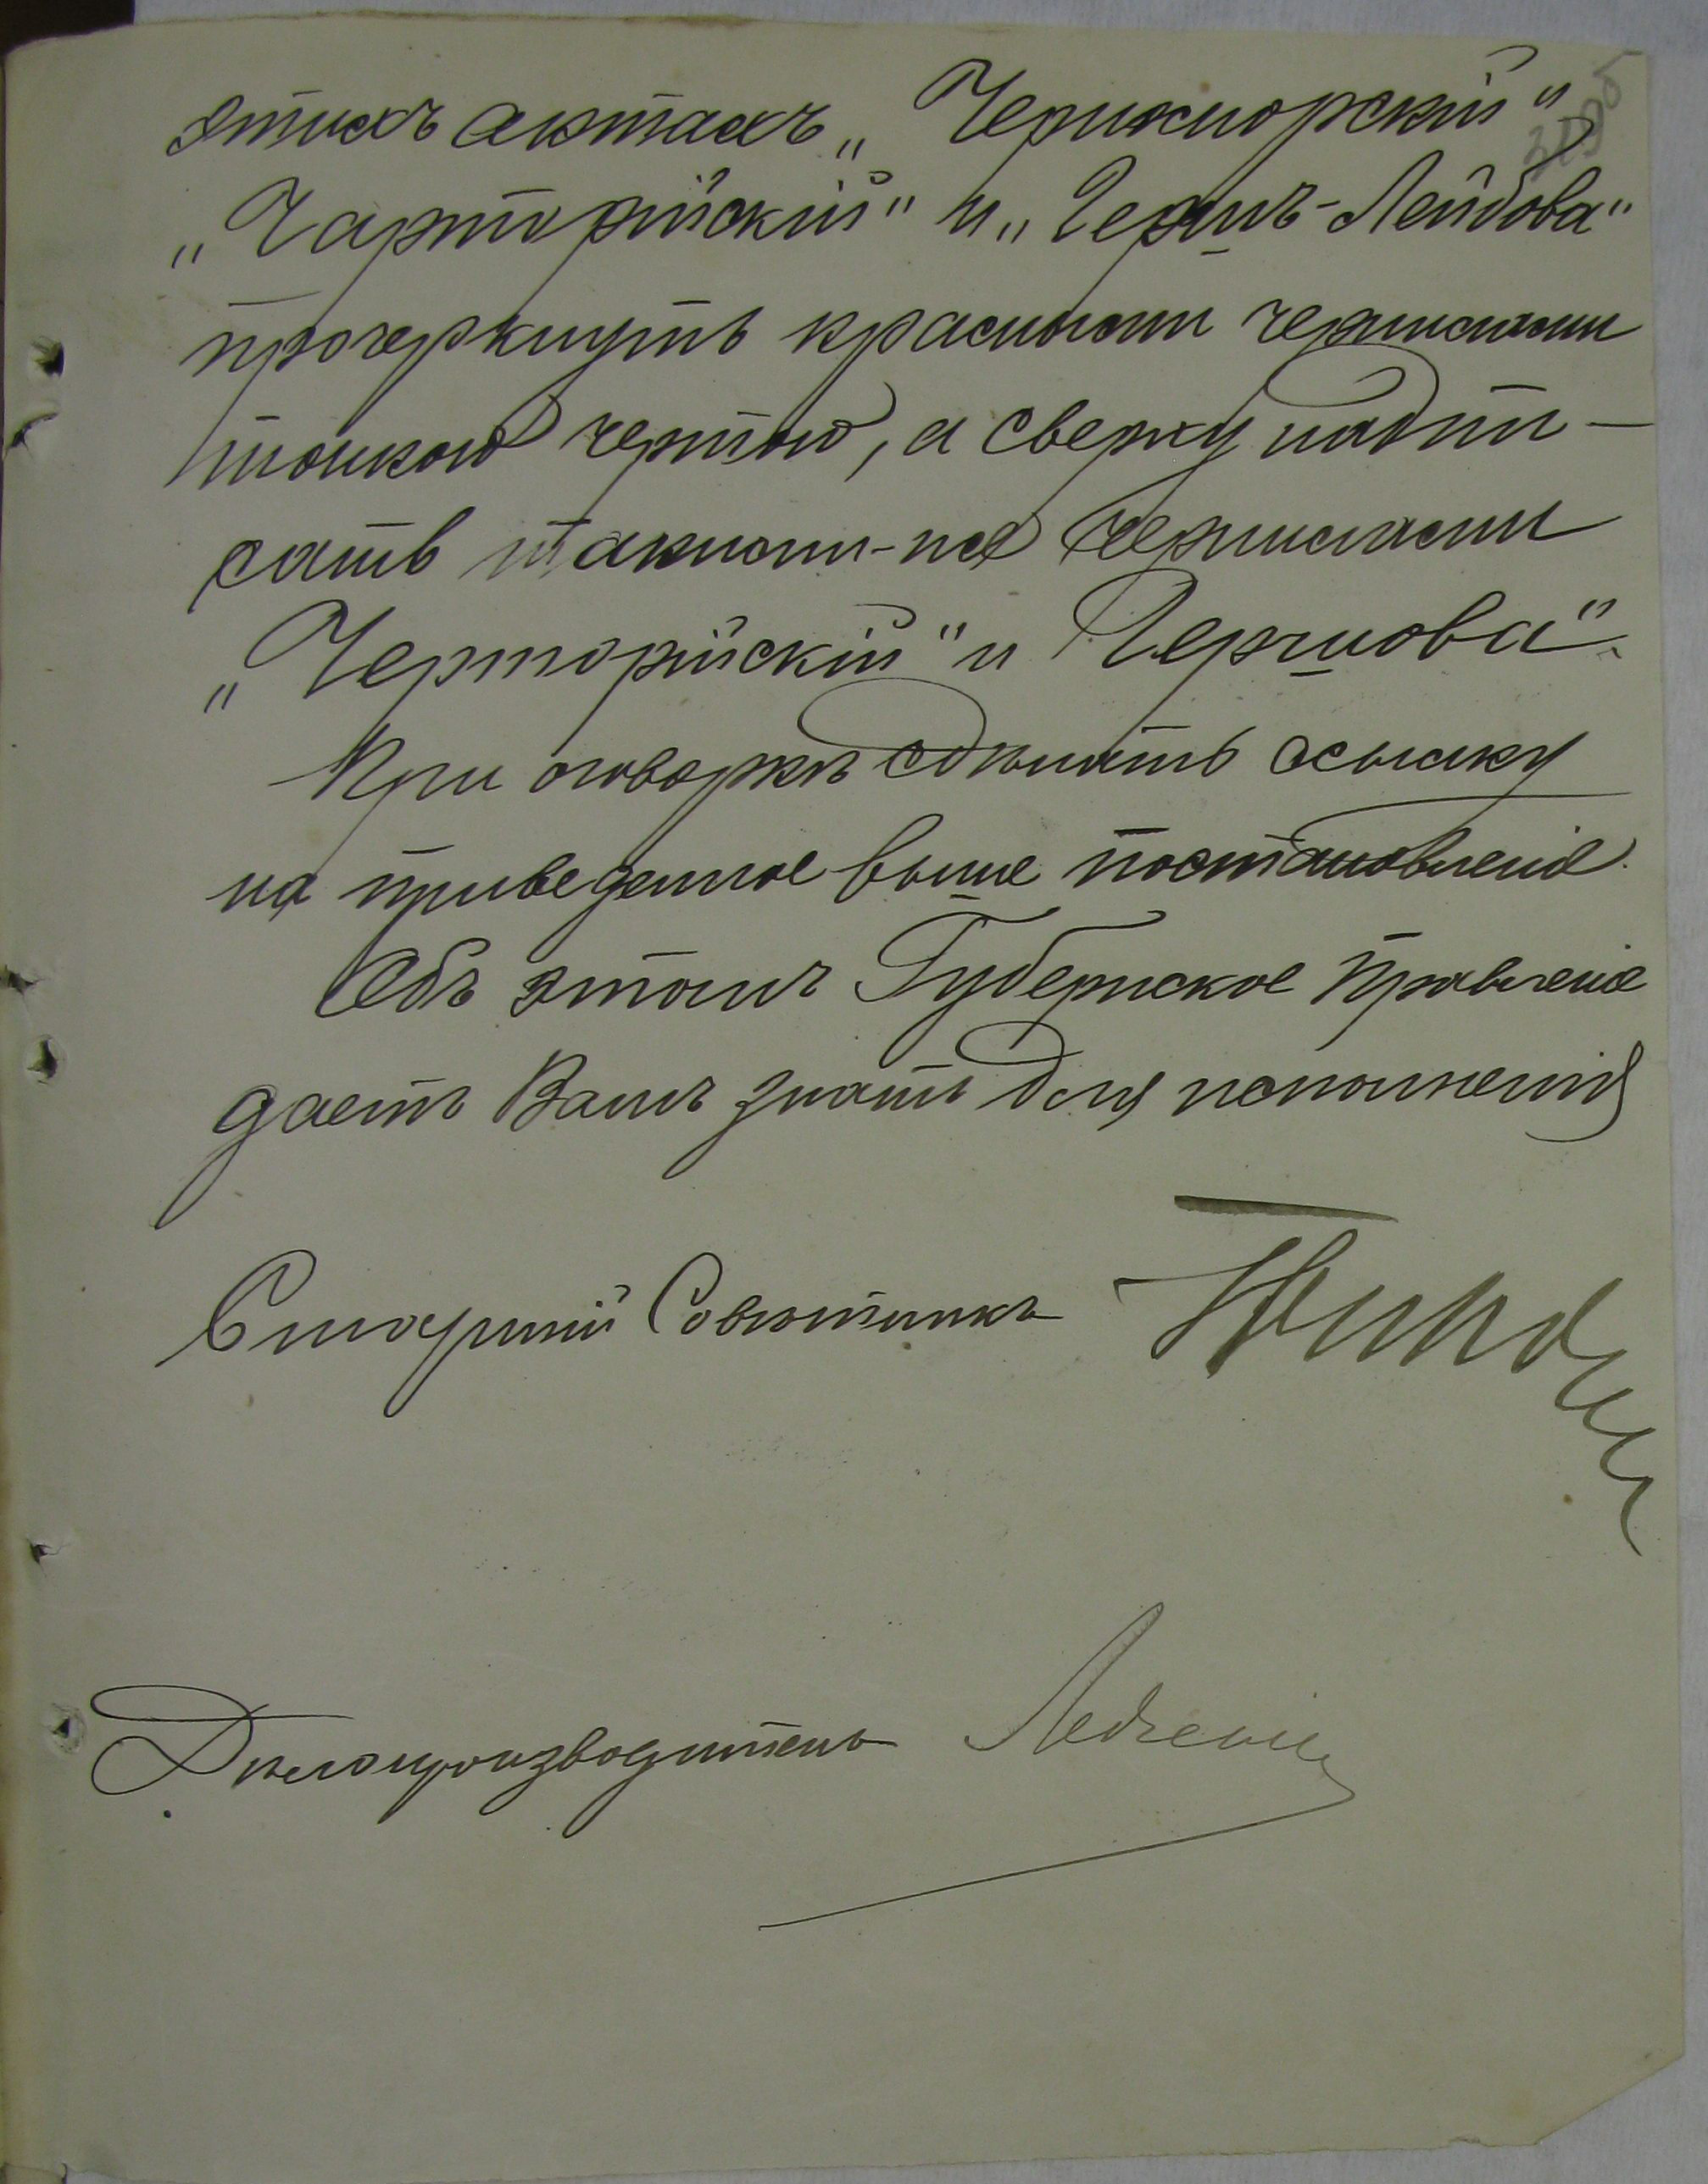 этихъ актахъ „Черноморскій“,
„Чарторійскій“ и „Гершъ-Лейбова“
прочеркнуть красными чернилами
тонкою чертою, а сверху надпи-
сать такими-же чернилами
„Черторійскій“ и Гершова“.
При оговоркѣ сдѣлать ссылку
на приведенное выше постановленіе.
Объ этомъ Губернское Правленіе
даетъ Вамъ знать для исполненія
Старшій Совѣтникъ
Дѣлопроизводитель